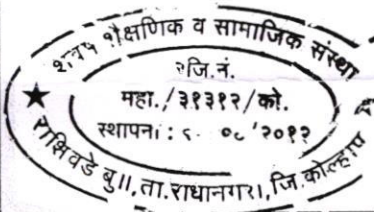 शैक्षणिक व सामाजिक संस्था
रजि.नं.
महा./३१३१२/को.
स्थापना :
राशिवडे बु॥, ता.राधानगरी, जि.कोल्हापूर